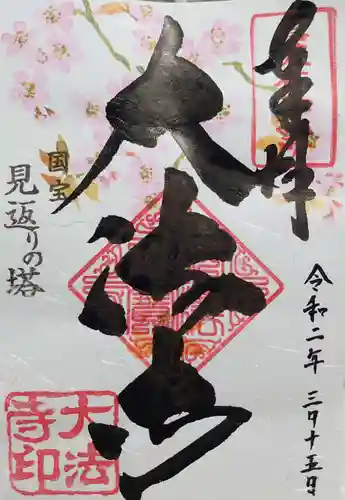 奉拝
令和二年 三月十五日
大法寺
国宝
見返りの塔
大法
寺印